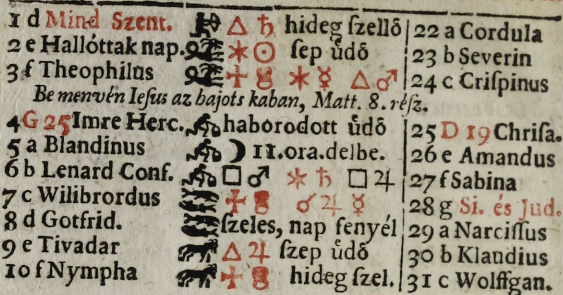 1 d Mind Szent. △ ♄ hideg ſzellő 22 a Cordula
2 e Hallóttak nap. ✶ ☉ ſep üdő 23 b Severin
3 f Theophilus ✶ ☿ △ ♂ 24 c Criſpinus
Be menvén Ieſus az hajots kaban, Matt. 8. réſz.
4 G 25 Imre Herc. haborodott üdő 25 D 19 Chriſa.
5 a Blandinus ☽ 11. ora. delbe. 26 e Amandus
6 b Lenard Conf. □ ♂ ✶ ♄ □ ♃ 27 f Sabina
7 c Wilibrordus ♂ ♃ ☿ 28 g Si. és Jud.
8 d Gotfrid. ſzeles, nap fenyél 29 a Narciſſus
9 e Tivadar △ ♃ ſzep üdő 30 b Klaudius
10 f Nympha hideg ſzel. 31 c Wolffgan.